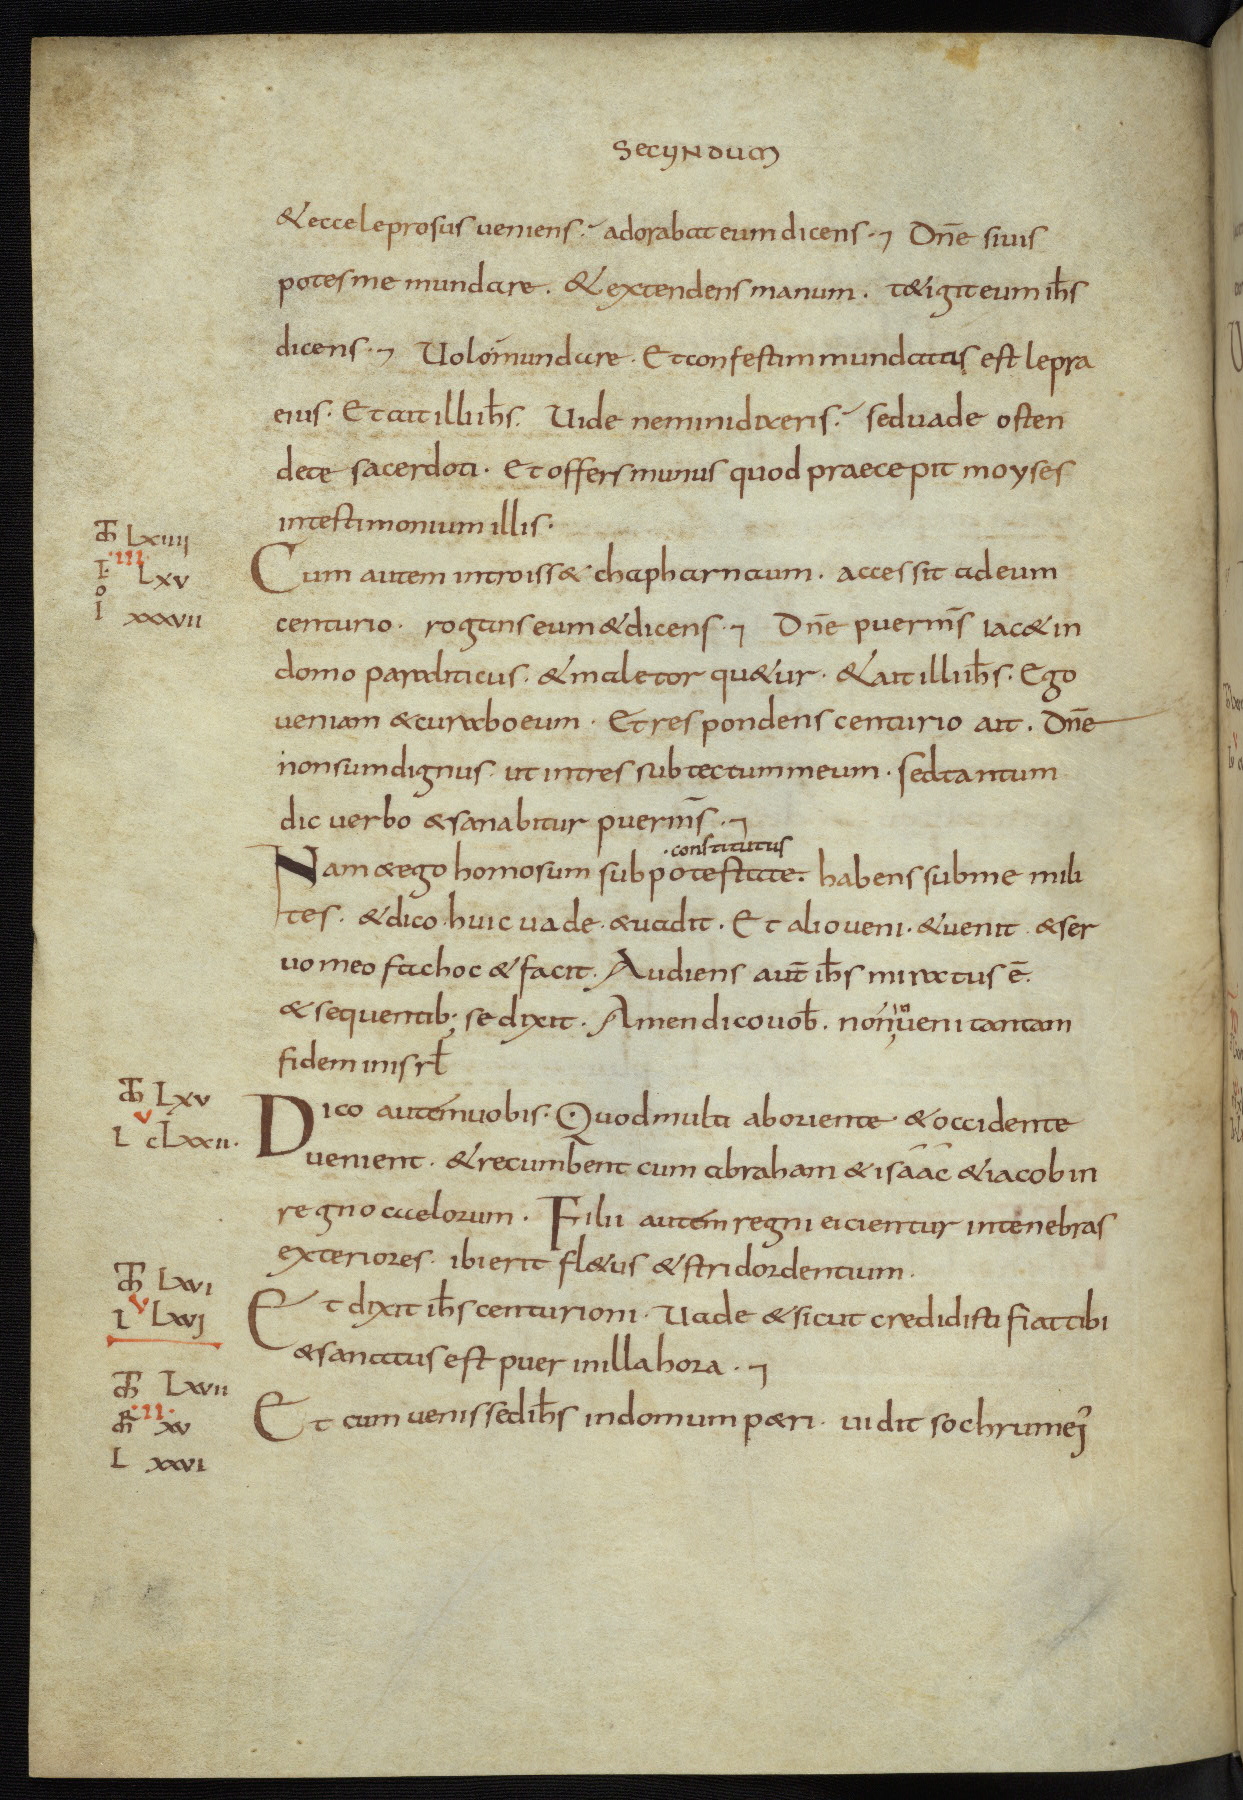 SECUNDUM
& ecce leprosus ueniens. adorabat eum dicens. Dn̄e siuis
potes me mundare. & extendens manum. t&igit eum ih̄s
dicens. Uolo mundare. Et confestim mundata est lepra
eius. Et ait illi ih̄s. Uide nemini dixeris. sed uade osten
de te sacerdoti. Et offers munus quod praecepit moyses
in testimonium illis.
Lxiiii
iii
Lxv
xxxvii
Cum autem introiss& chapharnaum. accessit ad eum
centurio. rogans eum & dicens. Dn̄e puer ms̄ iac& in
domo paraliticus. & male torqu&ur. & ait illi ih̄s. Ego
ueniam & curabo eum. Et respondens centurio ait. Dn̄e
non sum dignus ut intres sub tectum meum. sed tantum
dic uerbo & sanabitur puer ms̄.
constitutus
Nam & ego homo sum sub potestate. habens sub me mili
tes. & dico huic uade. & uadit. Et alio ueni. & uenit & ser
uo meo fac hoc & facit. Audiens aut̄ ih̄s miratus ē.
& sequentib; se dixit. Amen dico uob̄. non inueni tantam
fidem in isrl̄
Lxv
v
L cLxxii.
Dico autem uobis. Quod multi ab oriente & occidente
uenient. & recumbent cum abraham & isāāc & iacob in
regno caelorum. Filii autem regni eicientur in tenebras
exteriores. ibi erit fl&us & stridor dentium.
Lxvi
v
L Lxvi
Et dixit ih̄s centurioni. Uade & sicut credidisti fiat tibi
& sanatus est puer in illa hora.
Lxvii
ii
xv
L xxvi
Et cum uenissed ih̄s in domum petri. uidit sochrum ei'